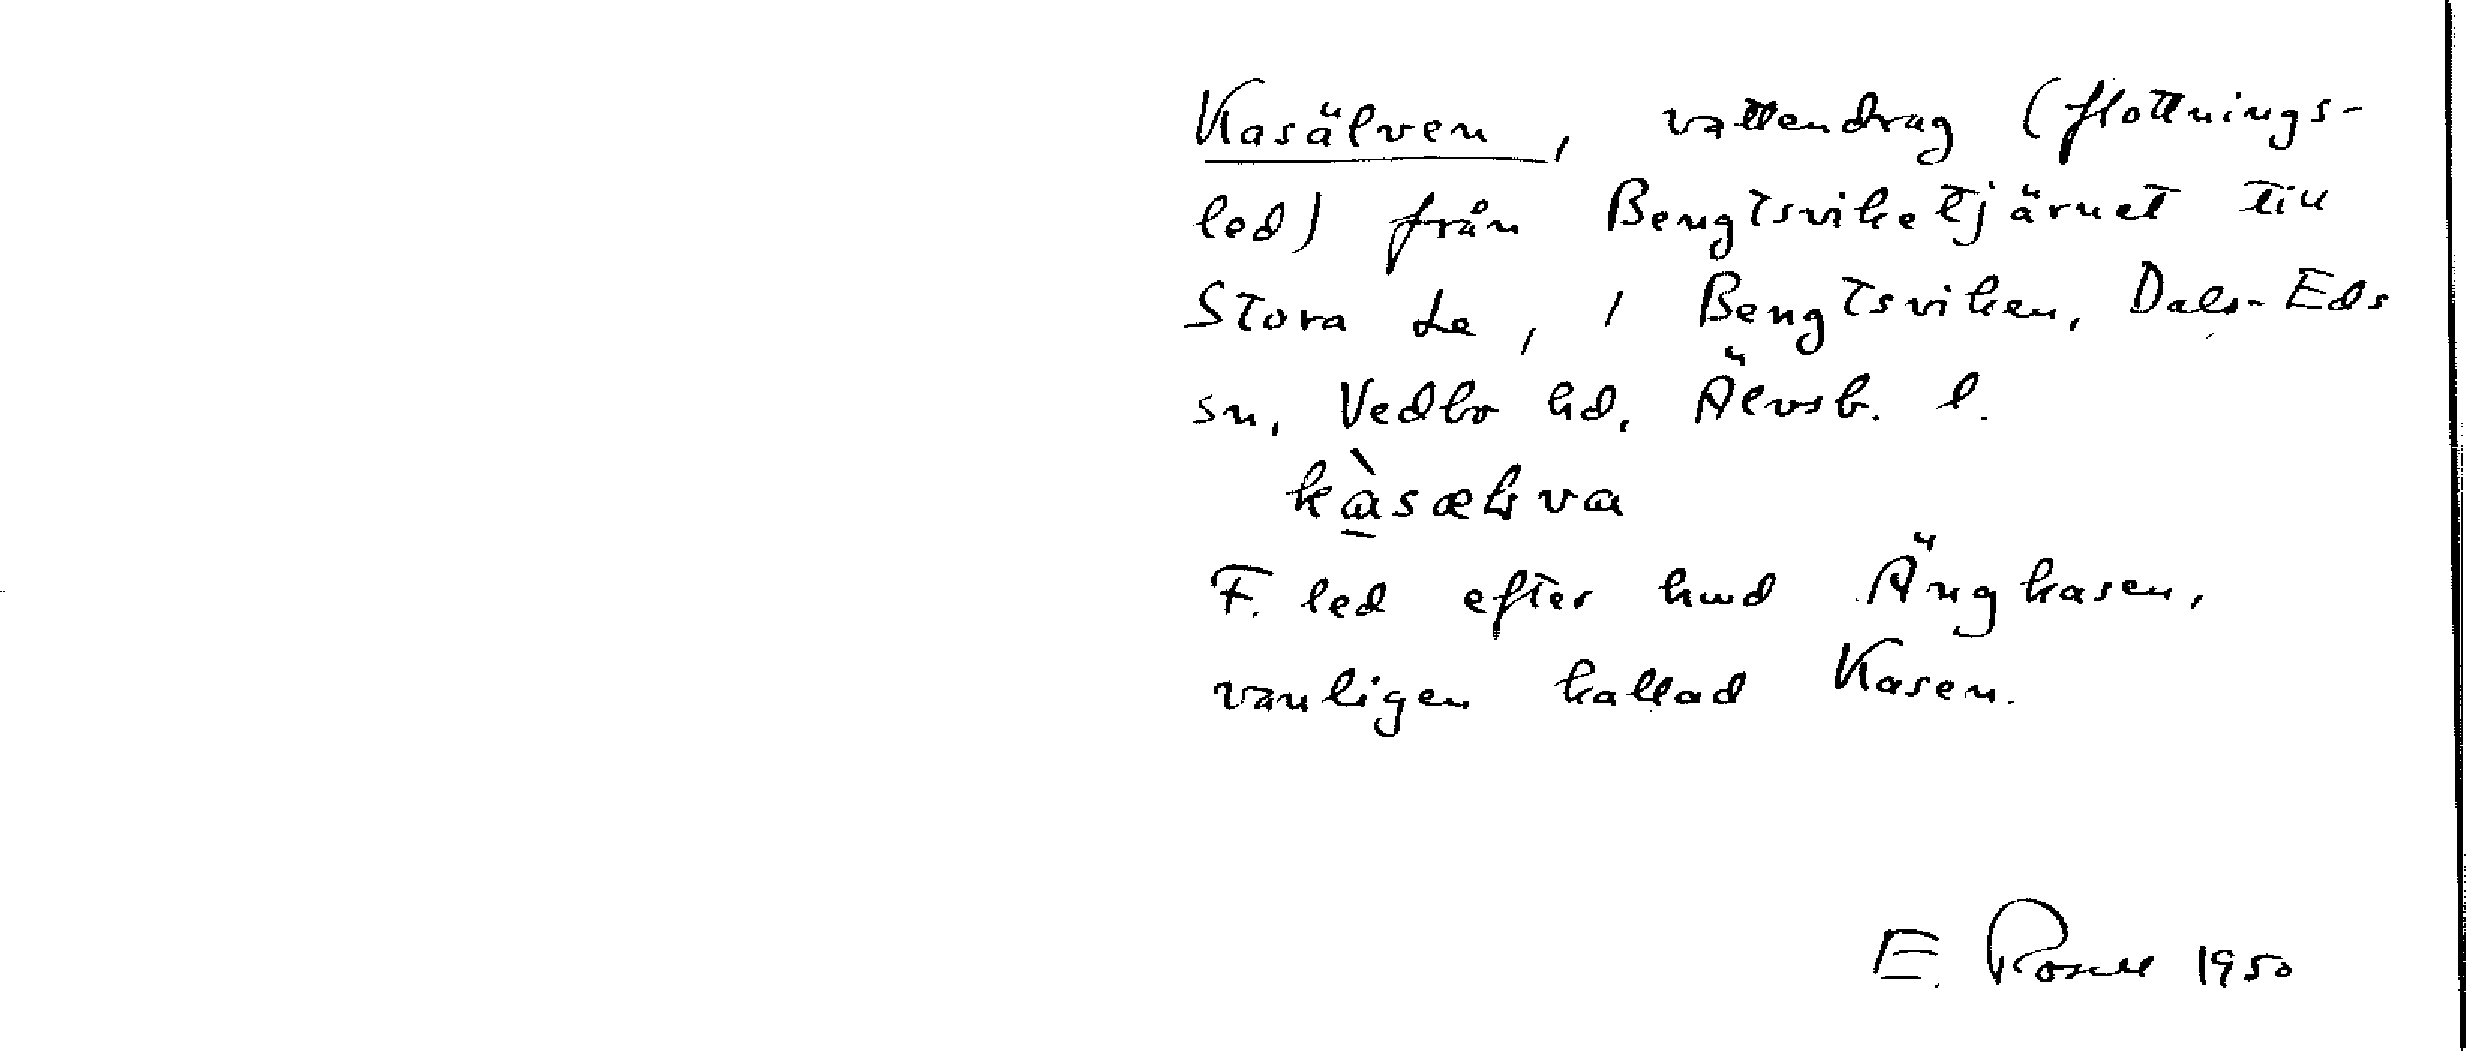 Kasälven, vattendrag (flottnings-
led) från Bengtsviketjärnet till
Stora Le, i Bengtsviken, Dals-Eds
sn, Vedbo hd, Älvsb. l.
kàsælva
F. led efter hmd Ängkasen,
vanligen kallad Kasen.
E. Rosell 1950